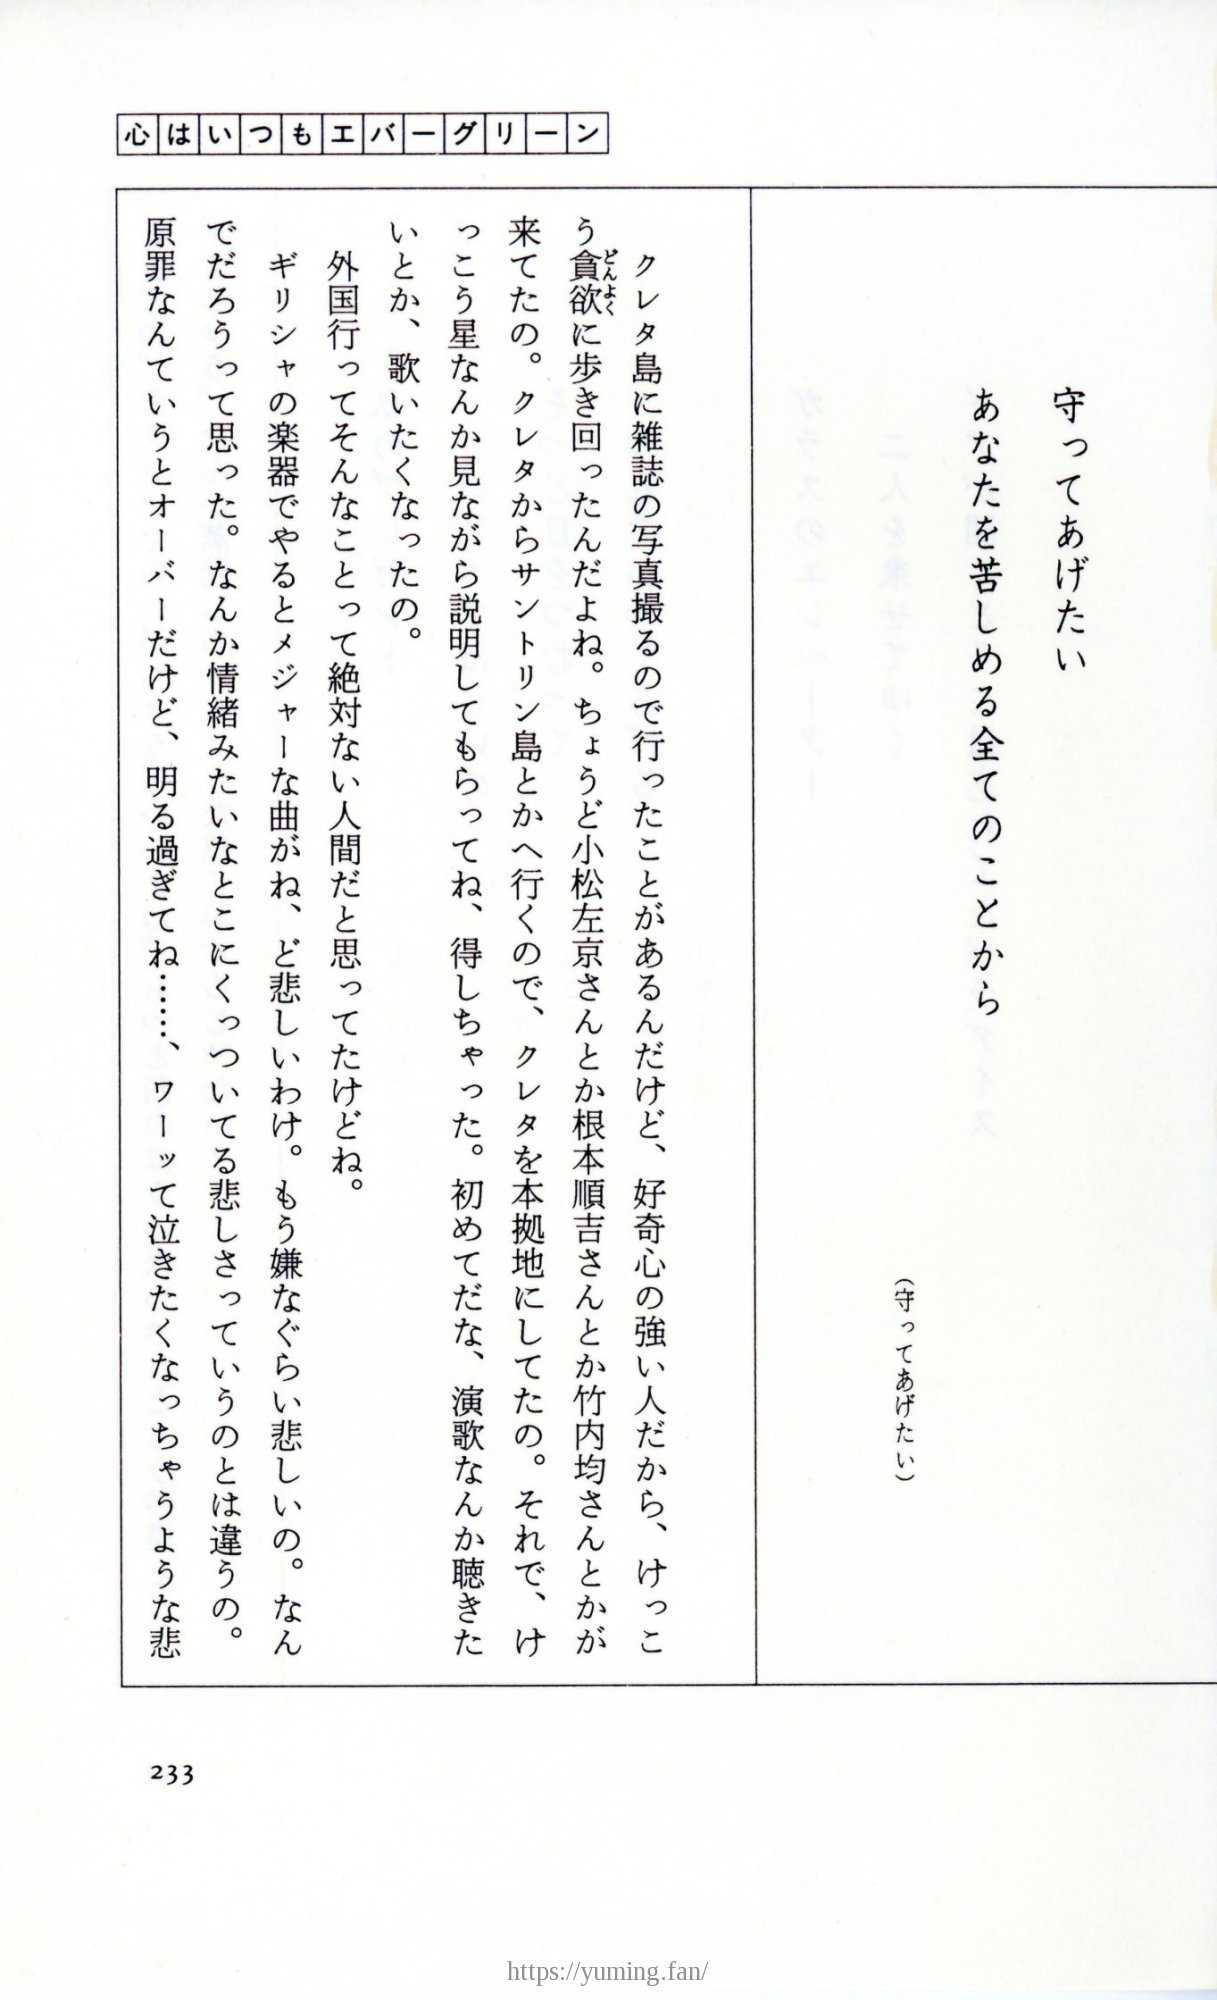 心はいつもエバーグリーン
守ってあげたい
あなたを苦しめる全てのことから
（守ってあげたい）
クレタ島に雑誌の写真撮るので行ったことがあるんだけど、好奇心の強い人だから、けっこ
う貪欲に歩き回ったんだよね。ちょうど小松左京さんとか根本順吉さんとか竹内均さんとかが
どんよく
来てたの。クレタからサントリン島とかへ行くので、クレタを本拠地にしてたの。それで、け
っこう星なんか見ながら説明してもらってね、得しちゃった。初めてだな、演歌なんか聴きた
いとか、歌いたくなったの。
外国行ってそんなことって絶対ない人間だと思ってたけどね。
ギリシャの楽器でやるとメジャーな曲がね、ど悲しいわけ。もう嫌なぐらい悲しいの。なん
でだろうって思った。なんか情緒みたいなとこにくっついてる悲しさっていうのとは違うの。
原罪なんていうとオーバーだけど、明る過ぎてね……、ワーッて泣きたくなっちゃうような悲
233
https://yuming.fan/